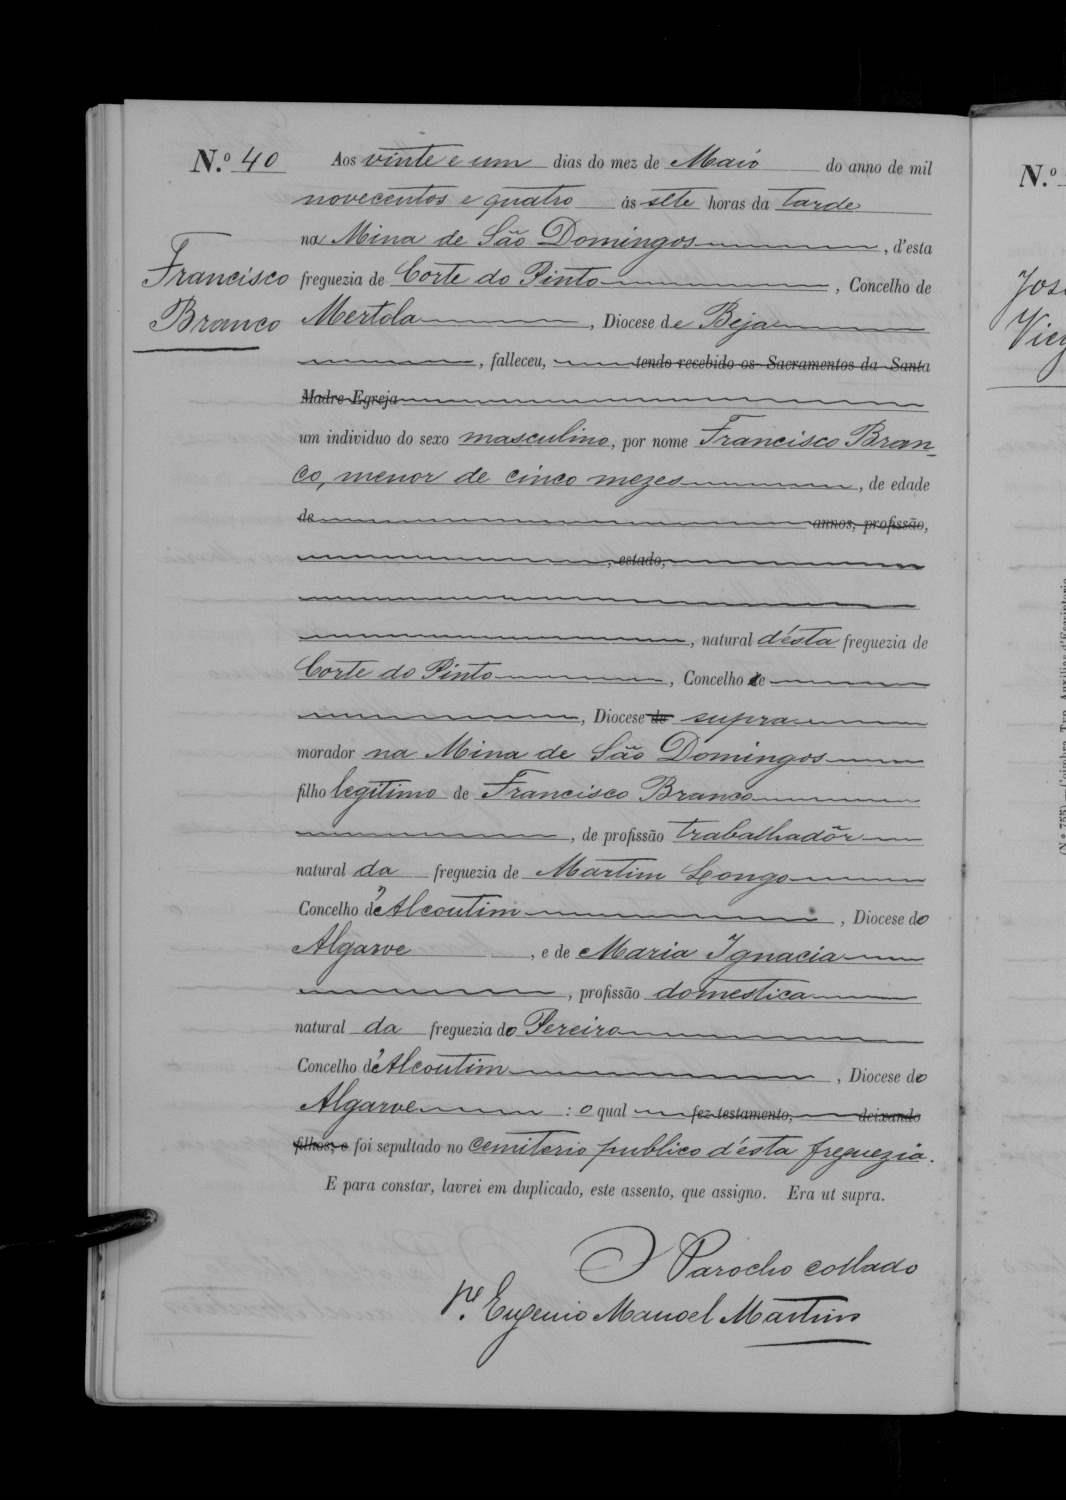 N.º 40
Aos vinte e um dias do mez de Maio do anno de mil
novecentos e quatro ás sete horas da tarde
na Mina de São Domingos, d'esta
Francisco
freguezia de Corte do Pinto, Concelho de
Branco
Mertola, Diocese de Beja
, falleceu, tendo recebido os Sacramentos da Santa
Madre Egreja
um individuo do sexo masculino, por nome Francisco Bran-
co, menor de cinco mezes, de edade
de annos, profissão,
, estado,
, natural d'ésta freguezia de
Corte do Pinto, Concelho de
, Diocese de supra
morador na Mina de São Domingos
filho legitimo de Francisco Branco
, de profissão trabalhadôr
natural da freguezia de Martim Longo
Concelho d'Alcoutim, Diocese do
Algarve, e de Maria Ignacia
, profissão domestica
natural da freguezia do Pereiro
Concelho d'Alcoutim, Diocese do
Algarve : o qual fez testamento, deixando
filhos, e foi sepultado no cemiterio publico d'ésta freguezia.
E para constar, lavrei em duplicado, este assento, que assigno. Era ut supra.
O Parocho collado
Pe. Eugenio Manoel Martins
N.º
José